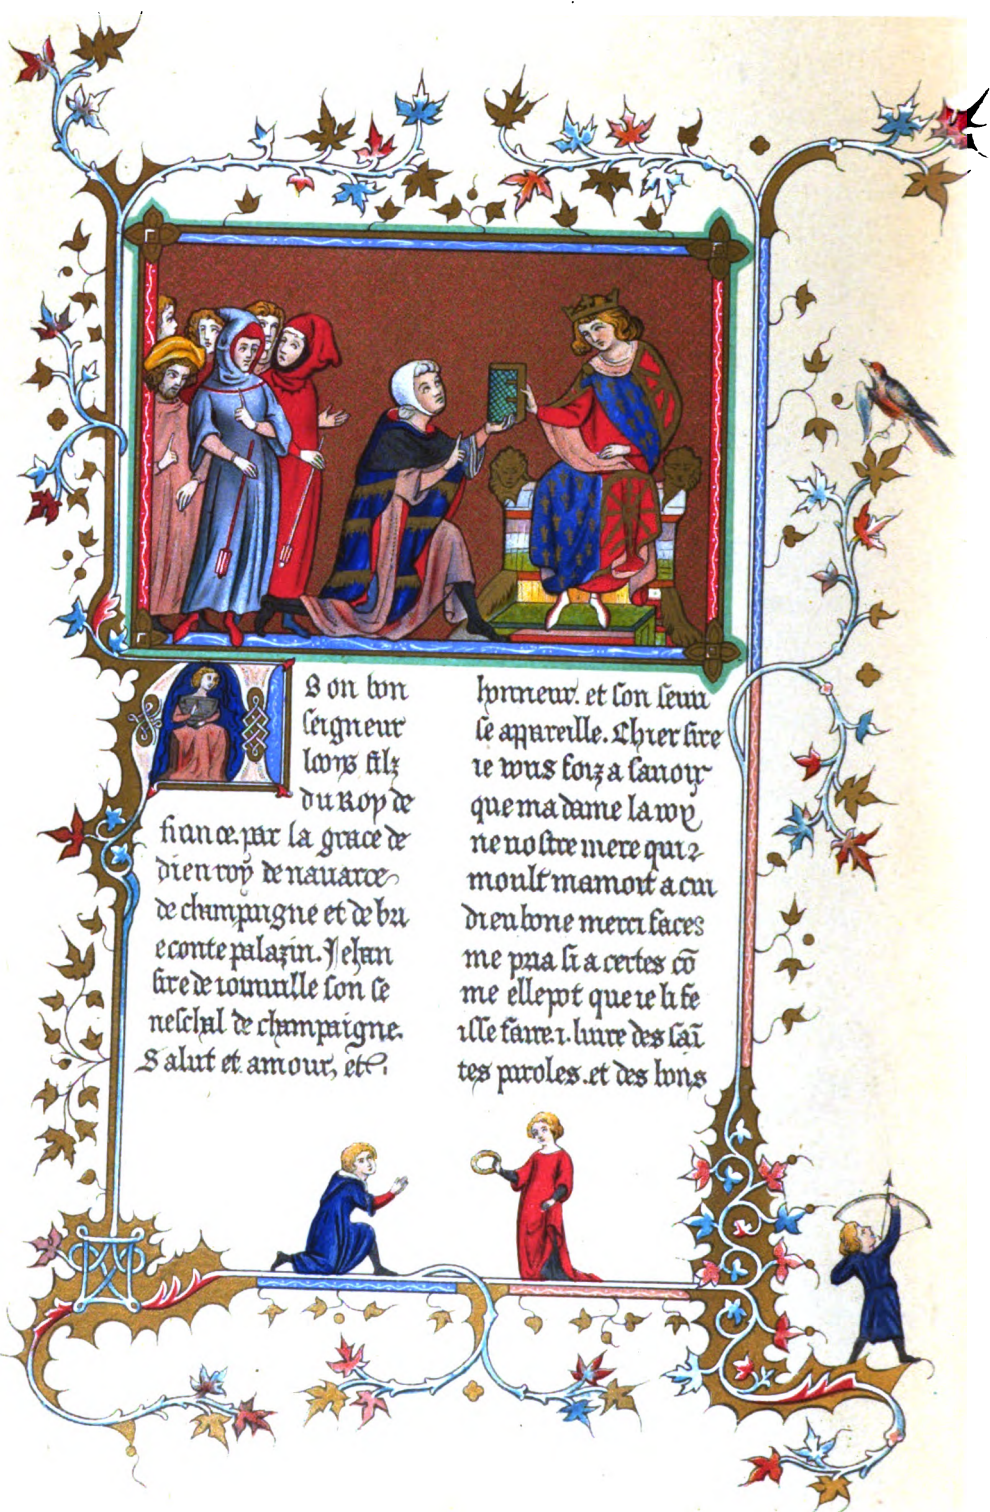 A son bon
seigneur
looys filz
du Roy de
france. par la grace de
dieu roy de nauarre
de champaigne et de bri
e conte palazin. Jehan
sire de ioinuille son se
neschal de champaigne.
Salut et amour, et
honneur. et son seruise
se appareille. Chier sire
ie vous foiz a sauoir
que ma dame la roy
ne nostre mere qui
moult mamoit a cui
dieu bone merci face
me pria si a certes cõ
me elle pot que ie li fe
isse faire .i. liure des saī
tes paroles .et des bons